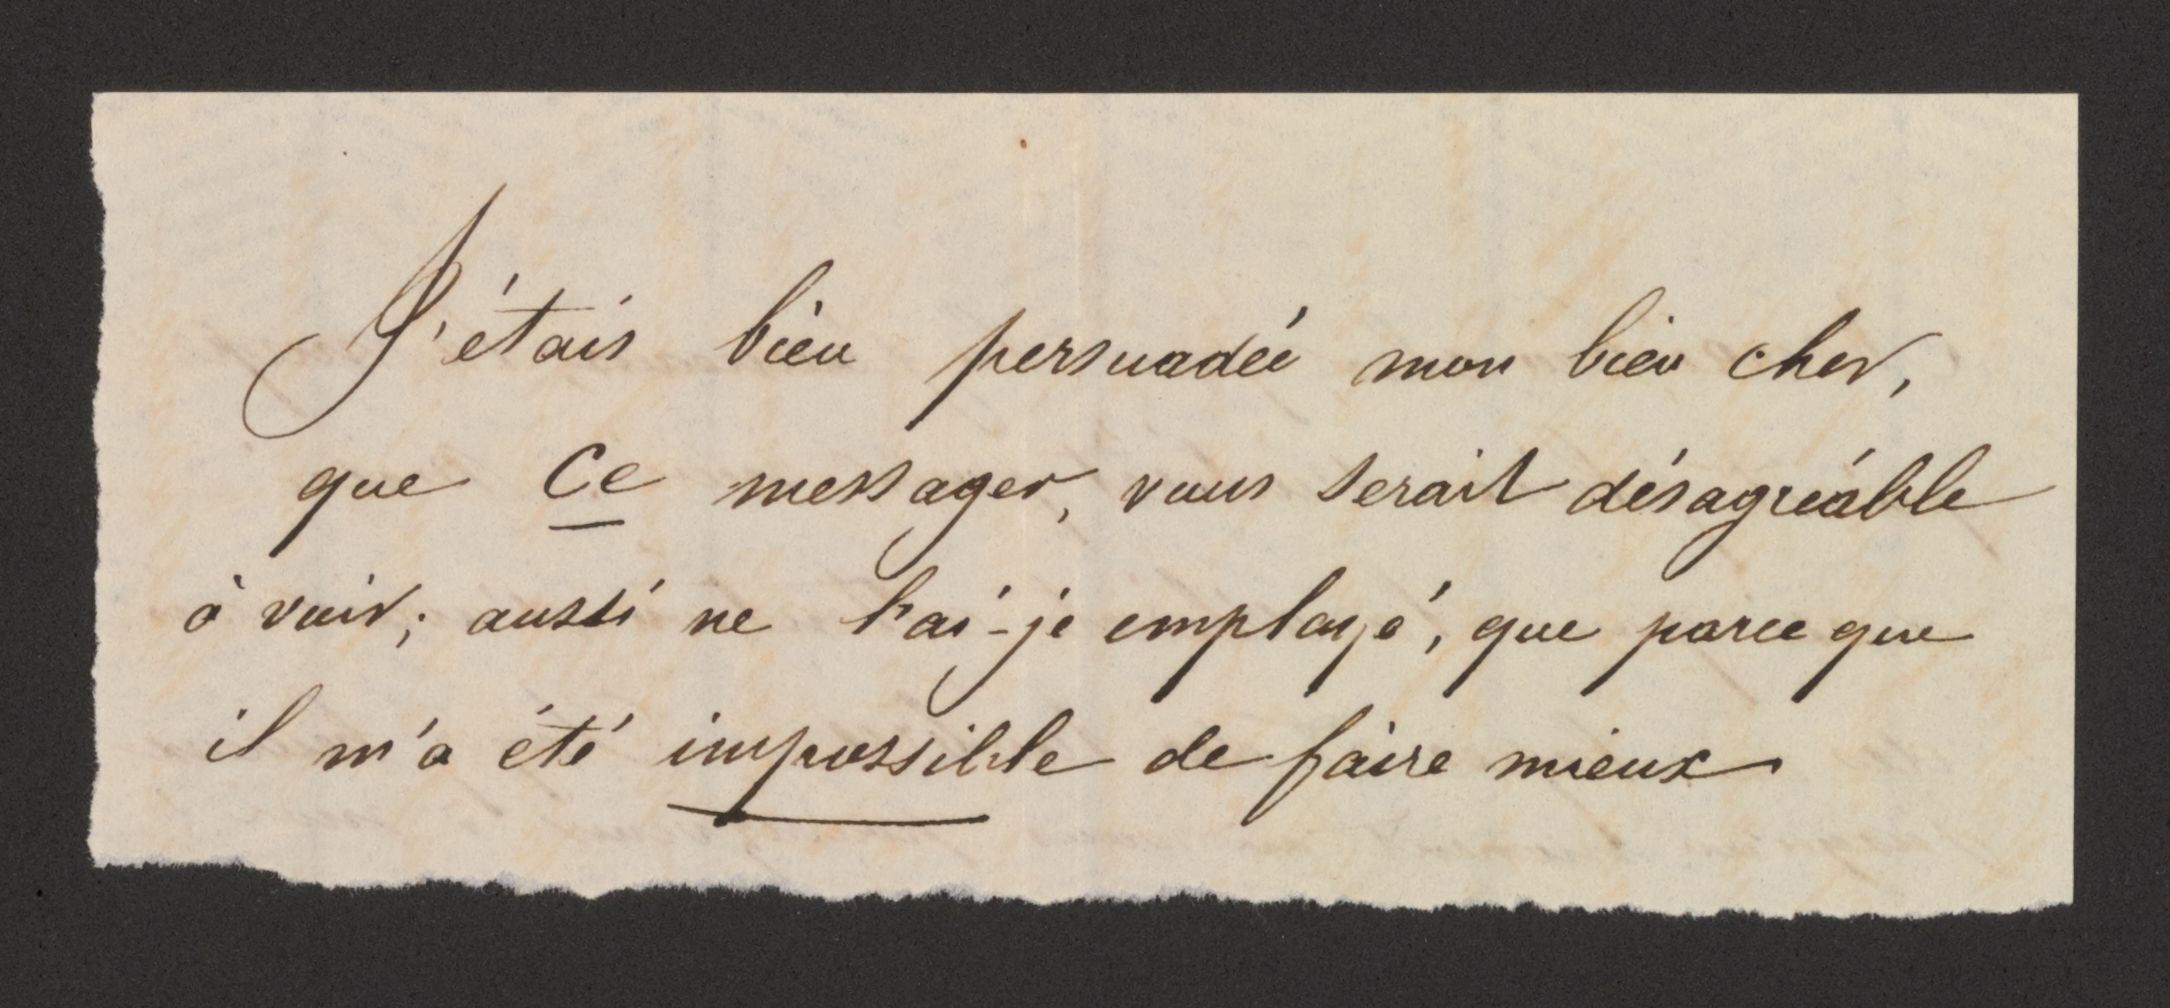 J'étais bien persuadée mon bien cher,
que ce messager, vous serait désagréable
à voir; aussi ne l'ai-je employé, que parce que
il m'a été impossible de faire mieux